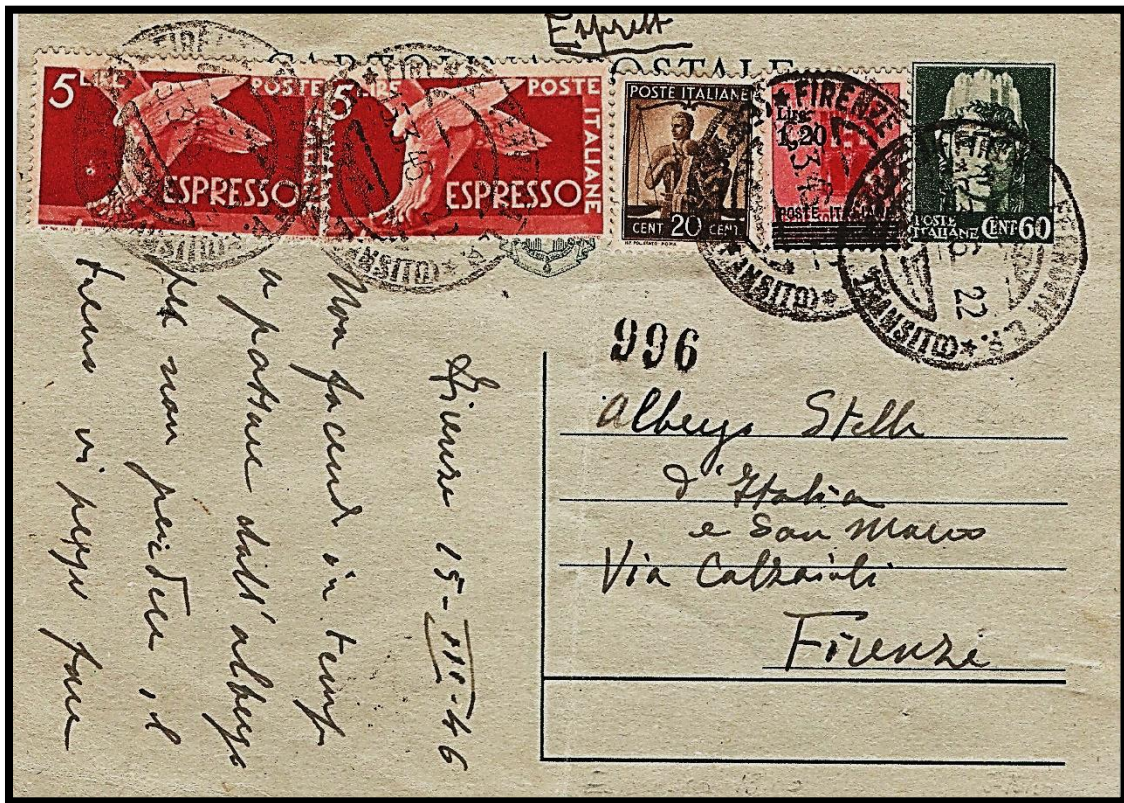 Espresso
CARTOLINA POSTALE
5 LIRE POSTE ITALIANE
ESPRESSO
5 LIRE POSTE ITALIANE
ESPRESSO
POSTE ITALIANE
CENT 20 CENT
Lire
1,20
POSTE ITALIANE
POSTE
ITALIANE CENT 60
FIRENZE
(TRANSITO)
996
Albergo Stella
d'Italia
e San Marco
Via Calzaioli
Firenze
Firenze 15-III-46
Non facendo in tempo
a passare dall'albergo
per non perdere il
treno vi prego fare